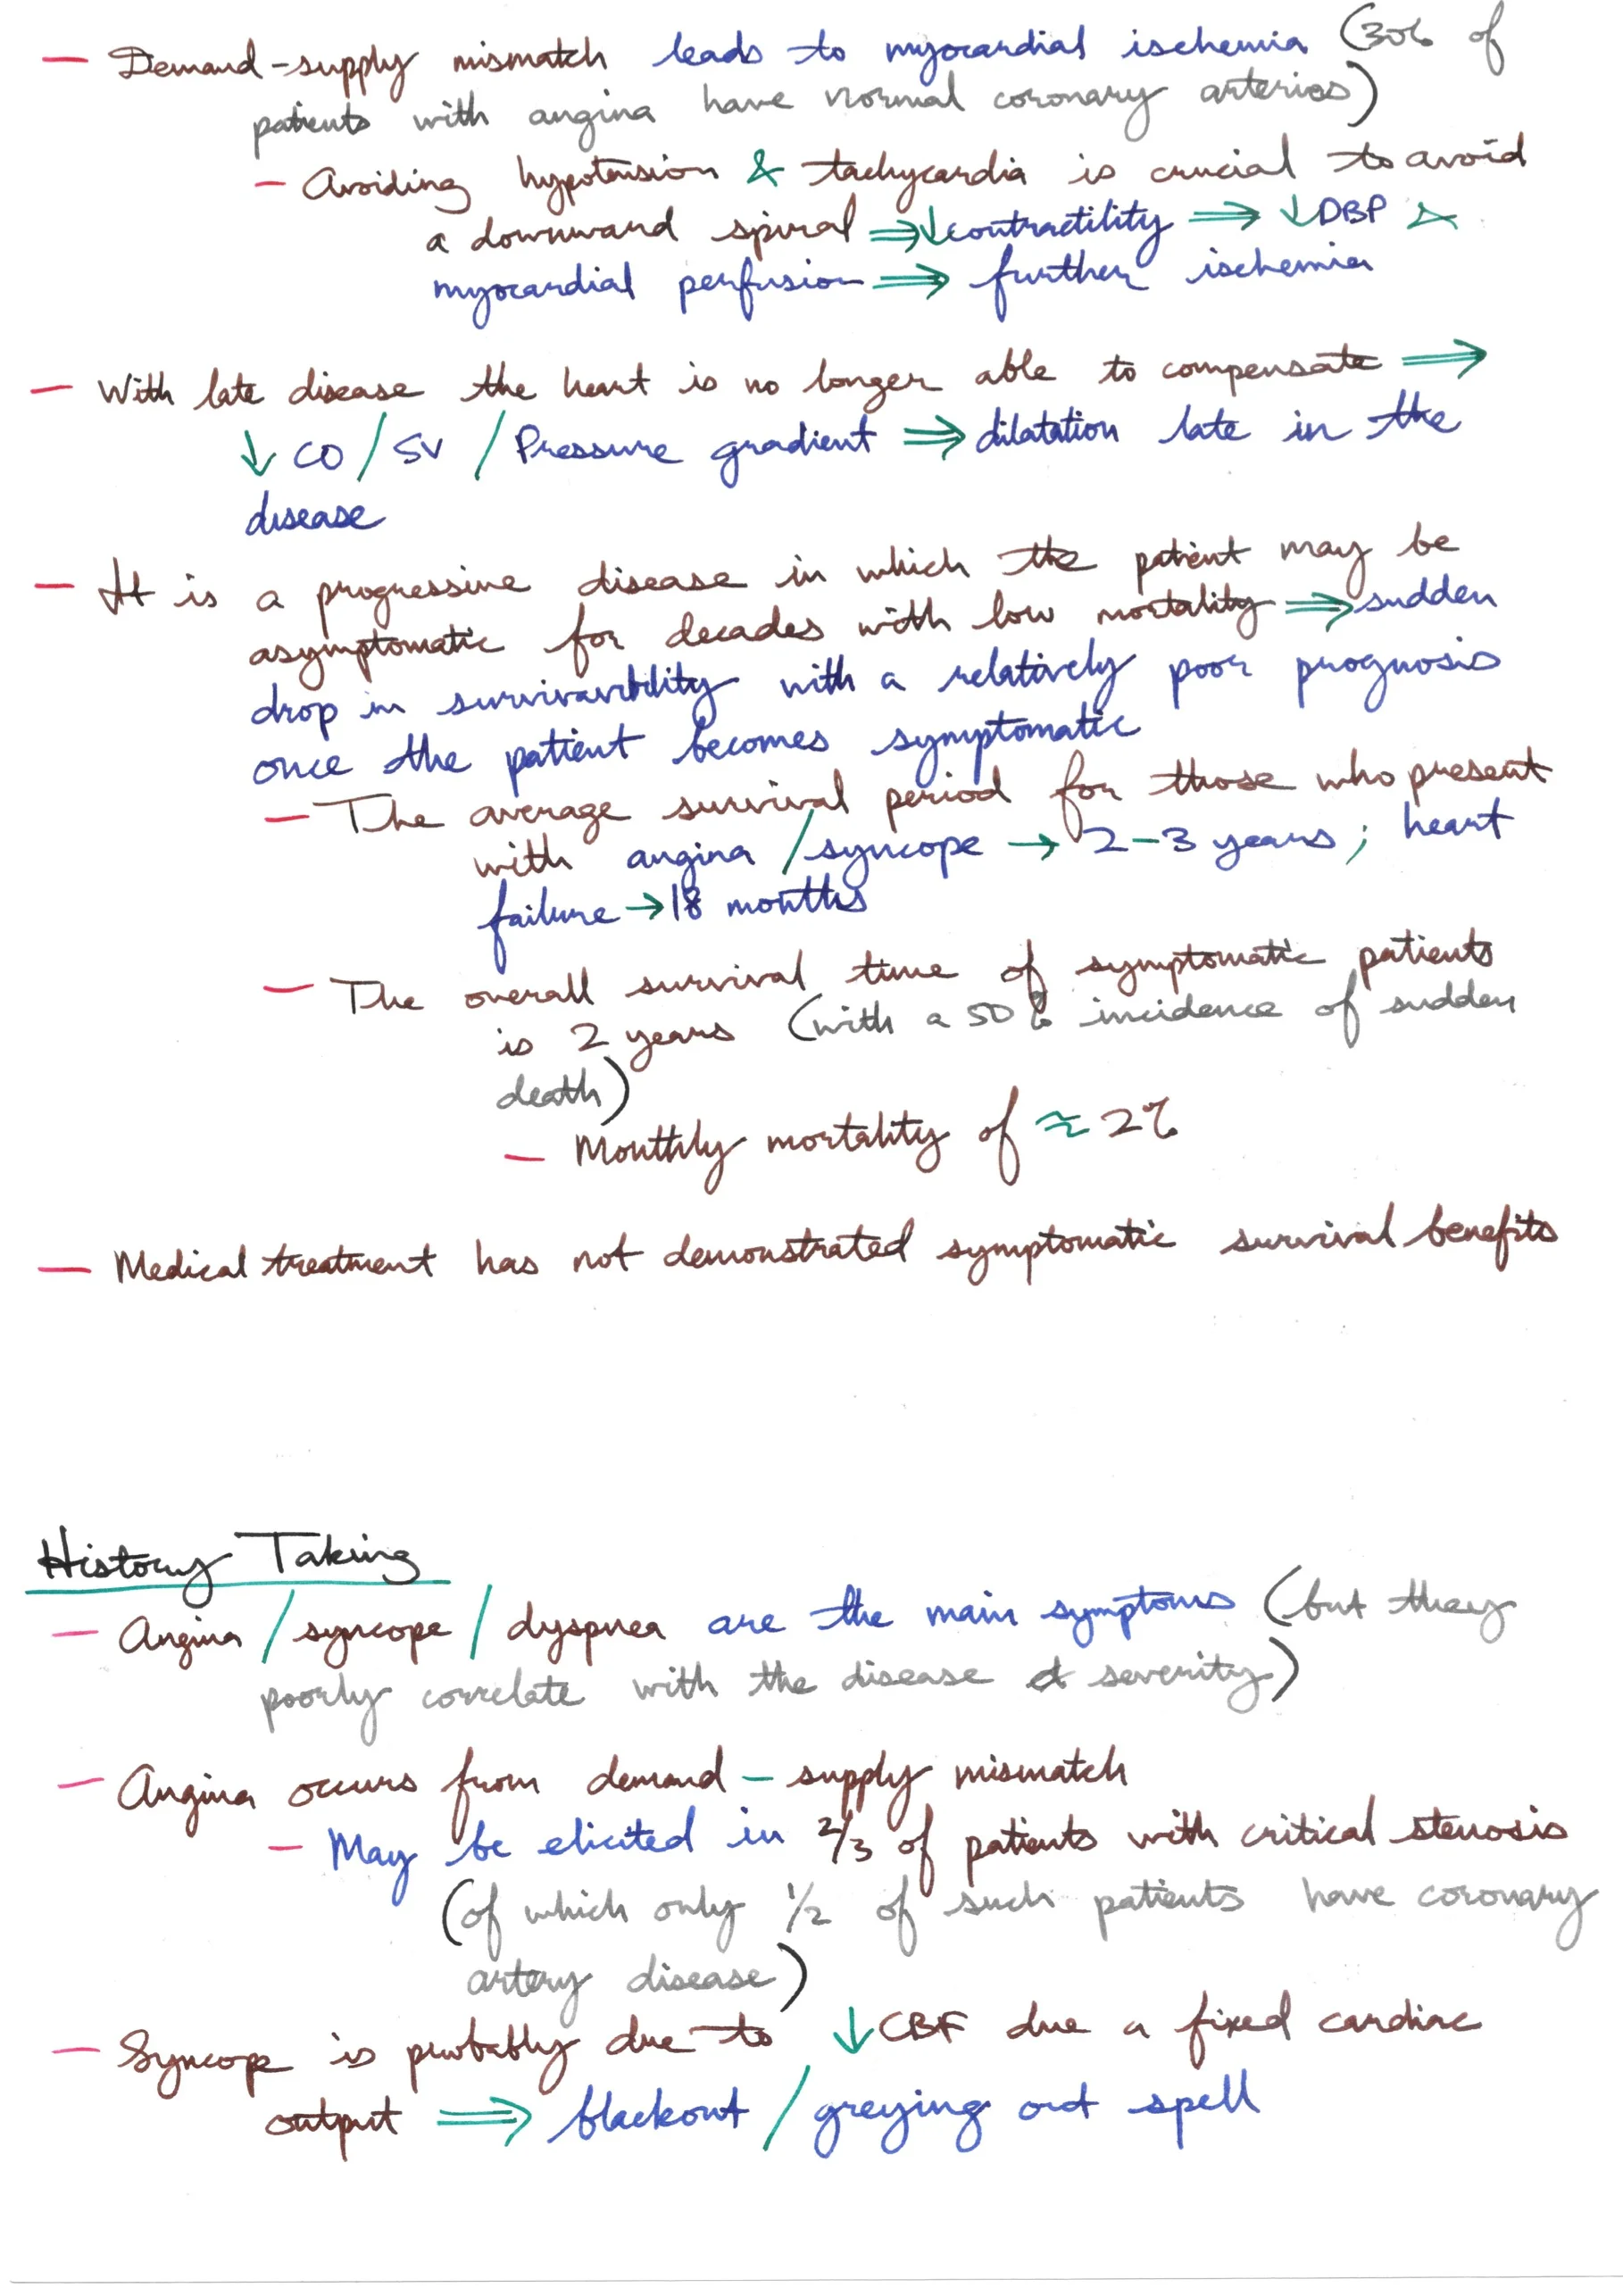 — Demand-supply mismatch leads to myocardial ischemia (30% of
patients with angina have normal coronary arteries)
— Avoiding hypotension & tachycardia is crucial to avoid
a downward spiral ⇒ ↓contractility ⇒ ↓DBP &
myocardial perfusion ⇒ further ischemia
— With late disease the heart is no longer able to compensate ⇒
↓ CO / SV / Pressure gradient ⇒ dilatation late in the
disease
— It is a progressive disease in which the patient may be
asymptomatic for decades with low mortality ⇒ sudden
drop in with a relatively poor prognosis
once the patient becomes symptomatic
— The average survival period for those who present
with angina / syncope → 2-3 years ; heart
failure → 18 months
— The overall survival time of symptomatic patients
is 2 years (with a 50% incidence of sudden
death)
— Monthly mortality of ≈ 2%
— Medical treatment has not demonstrated symptomatic survival benefits
History Taking
— Angina / syncope / dyspnea are the main symptoms (but they
poorly correlate with the disease severity)
— Angina occurs from demand - supply mismatch
— May be elicited in 2/3 of patients with critical stenosis
(of which only 1/2 of such patients have coronary
artery disease)
— Syncope is probably due to ↓ CBF due a fixed cardiac
output ⇒ blackout / greying out spell